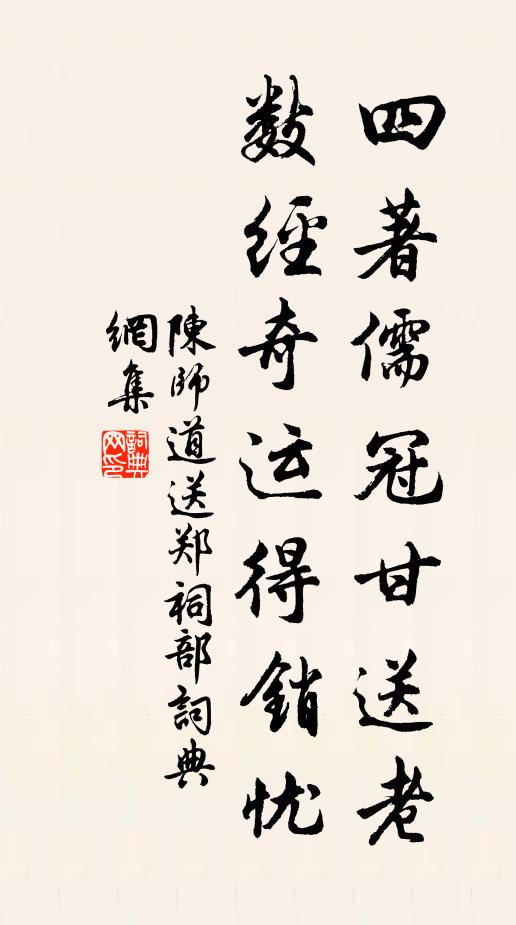 四著儒冠甘送老
数经奇运得銷忧
陳师道送郑祠部詞典
網集
詞典
网印